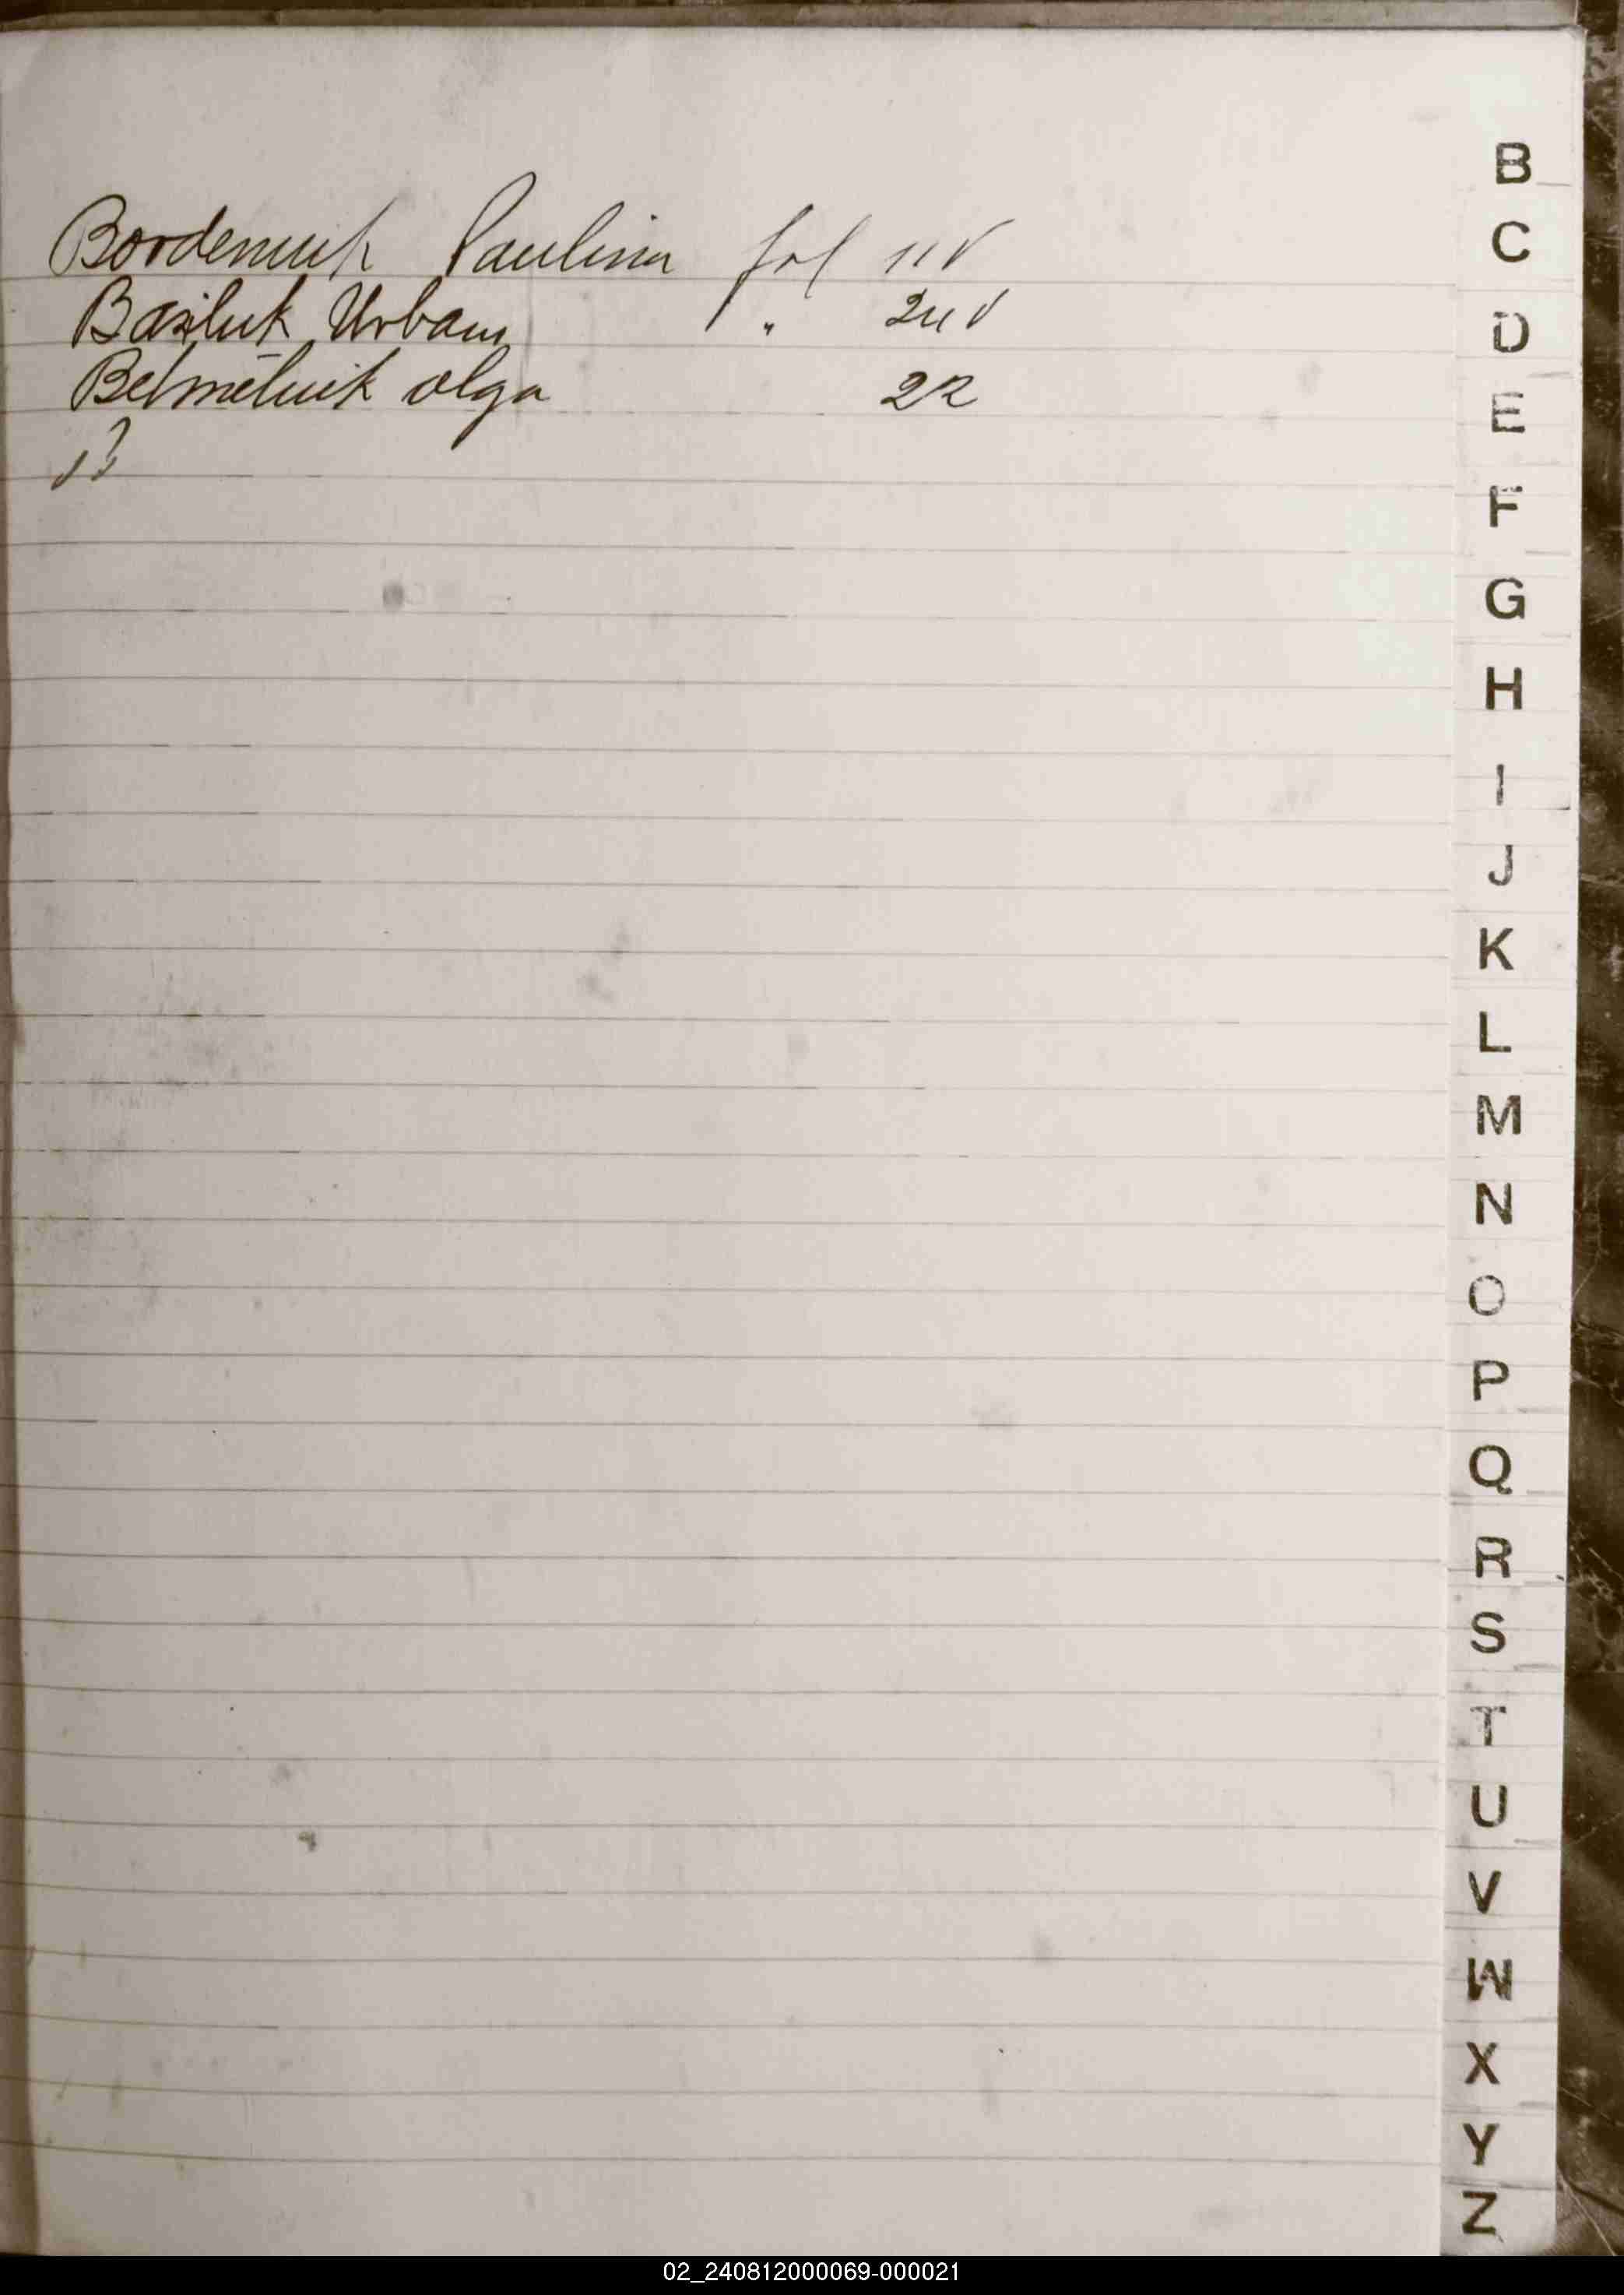 Bordeniuk Paulina fol 11 V
Basiluk Urban " 24 V
Belmelnik olga 22
B
C
D
E
F
G
H
I
J
K
L
M
N
O
P
Q
R
S
T
U
V
W
X
Y
Z
02_240812000069-000021